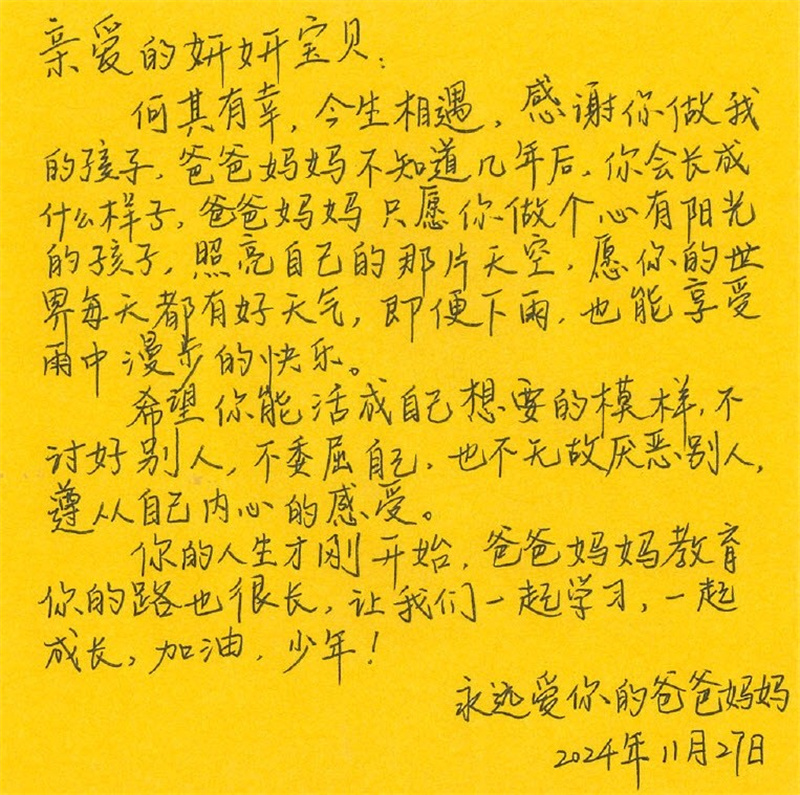 亲爱的妍妍宝贝：
何其有幸，今生相遇，感谢你做我
的孩子，爸爸妈妈不知道几年后，你会长成
什么样子，爸爸妈妈只愿你做个心有阳光
的孩子，照亮自己的那片天空，愿你的世
界每天都有好天气，即便下雨，也能享受
雨中漫步的快乐。
希望你能活成自己想要的模样，不
讨好别人，不委屈自己，也不无故厌恶别人，
遵从自己内心的感受。
你的人生才刚开始，爸爸妈妈教育
你的路也很长，让我们一起学习，一起
成长，加油，少年！
永远爱你的爸爸妈妈
2024年11月27日